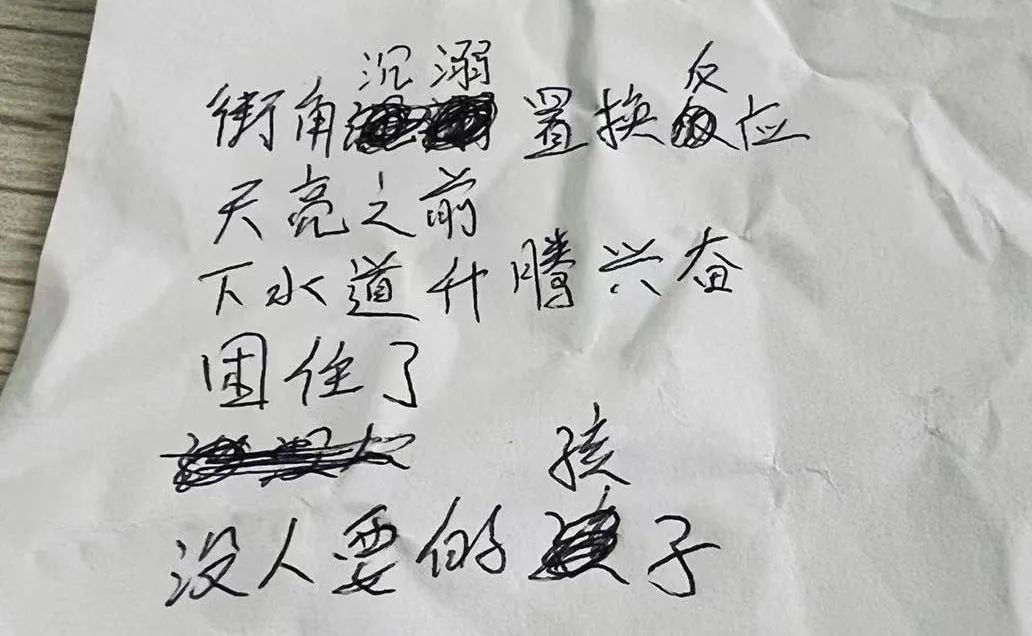 街角沉溺 置换反应
天亮之前
下水道升腾兴奋
困住了
没人要的孩子